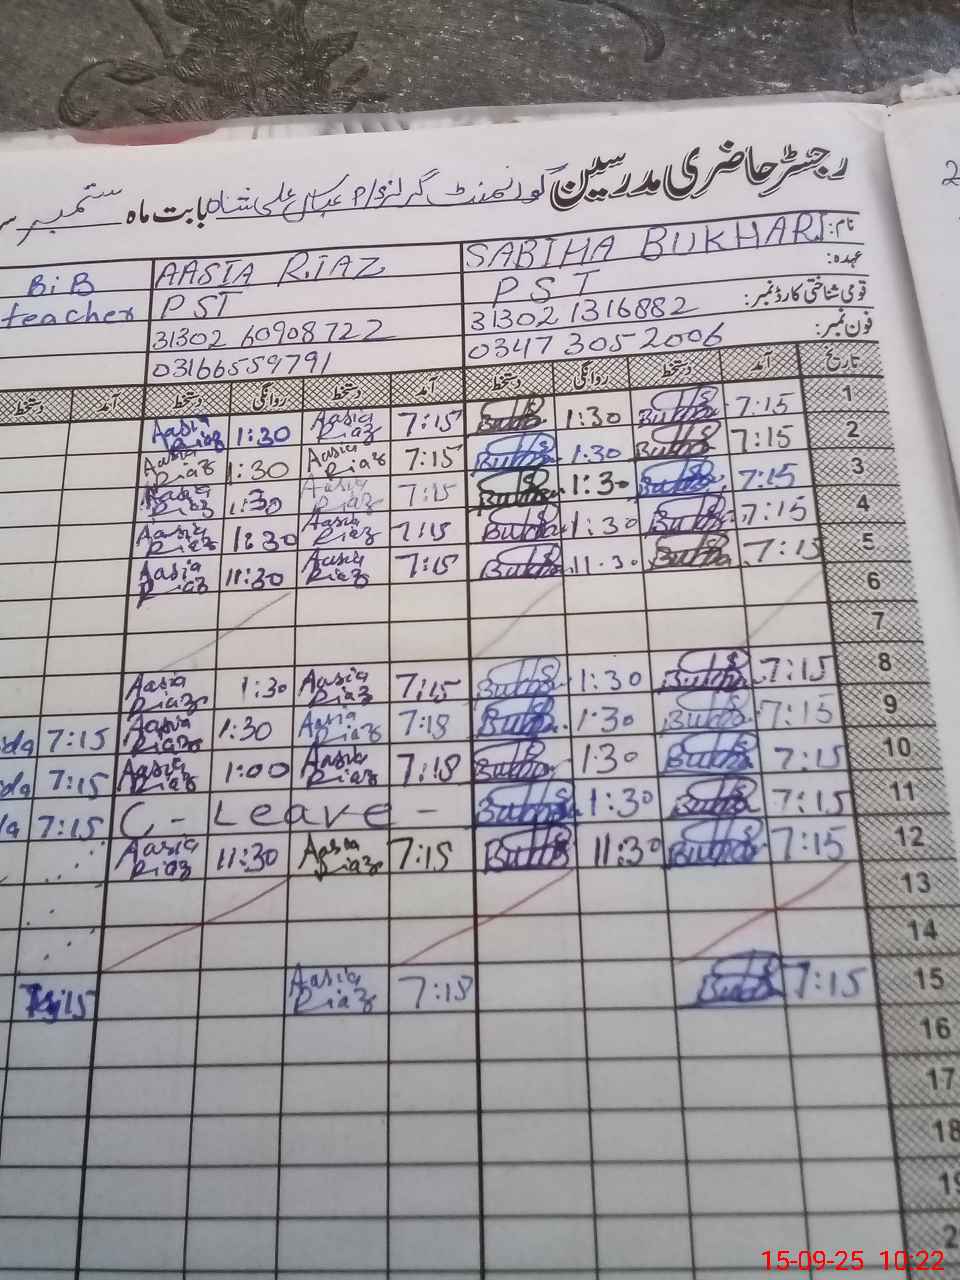 رجسٹر حاضری مدرسین گورنمنٹ گرلز عباس علی شاہ بابت ماہ ستمبر
نام: SABIHA BUKHARI AASIA RIAZ BiB
عہدہ: PST PST teacher
قومی شناختی کارڈ نمبر: 31302 1316882 31302 60908722
فون نمبر: 0347 305 2006 03166559791
تاریخ آمد دستخط روانگی دستخط آمد دستخط روانگی دستخط آمد دستخط
1 7:15 Bukha 1:30 Bukha 7:15 Aasia Riaz 1:30 Aasia Riaz
2 7:15 Bukha 1:30 Bukha 7:15 Aasia Riaz 1:30 Aasia Riaz
3 7:15 Bukha 1:30 Bukha 7:15 Aasia Riaz 1:30 Aasia Riaz
4 7:15 Bukha 1:30 Bukha 7:15 Aasia Riaz 1:30 Aasia Riaz
5 7:15 Bukha 11:30 Bukha 7:15 Aasia Riaz 11:30 Aasia Riaz
6
7
8 7:15 Bukha 1:30 Bukha 7:15 Aasia Riaz 1:30 Aasia Riaz
9 7:15 Bukha 1:30 Bukha 7:15 Aasia Riaz 1:30 Aasia Riaz 7:15
10 7:15 Bukha 1:30 Bukha 7:15 Aasia Riaz 1:00 Aasia Riaz 7:15
11 7:15 Bukha 1:30 Bukha C - Leave - 7:15
12 7:15 Bukha 11:30 Bukha 7:15 Aasia Riaz 11:30 Aasia Riaz
13
14
15 7:15 Bukha 7:15 Aasia Riaz
16
17
18
19
15-09-25 10:22